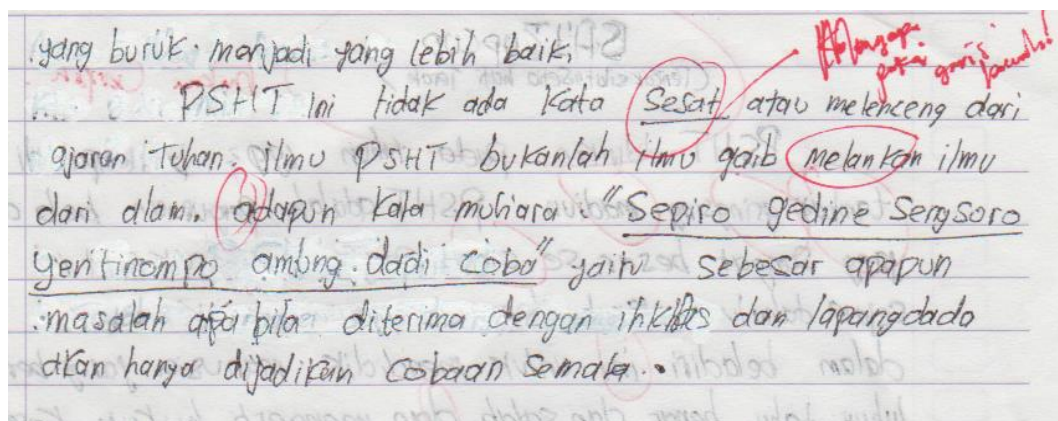 yang buruk menjadi yang lebih baik.
Mengapa pakai garis bawah!
PSHT ini tidak ada kata sesat atau melenceng dari
ajaran Tuhan. ilmu PSHT bukanlah ilmu gaib melankan ilmu
dari alam. adapun kata mutiara. "Sepiro gedine Sengsoro
yen tinompo ambng dadi coba" yaitu sebesar apapun
masalah apa bila diterima dengan ihkhlas dan lapangdada
akan hanya dijadikan cobaan semata.